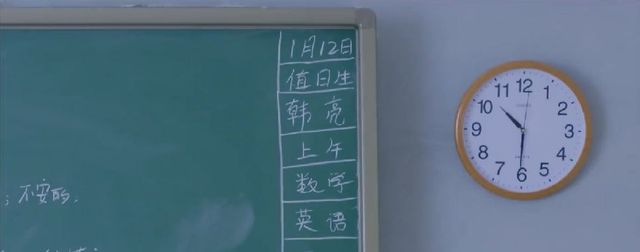 1月12日
值日生
韩亮
上午
数学
英语
；不安的，
12
1
2
3
4
5
6
7
8
9
10
11